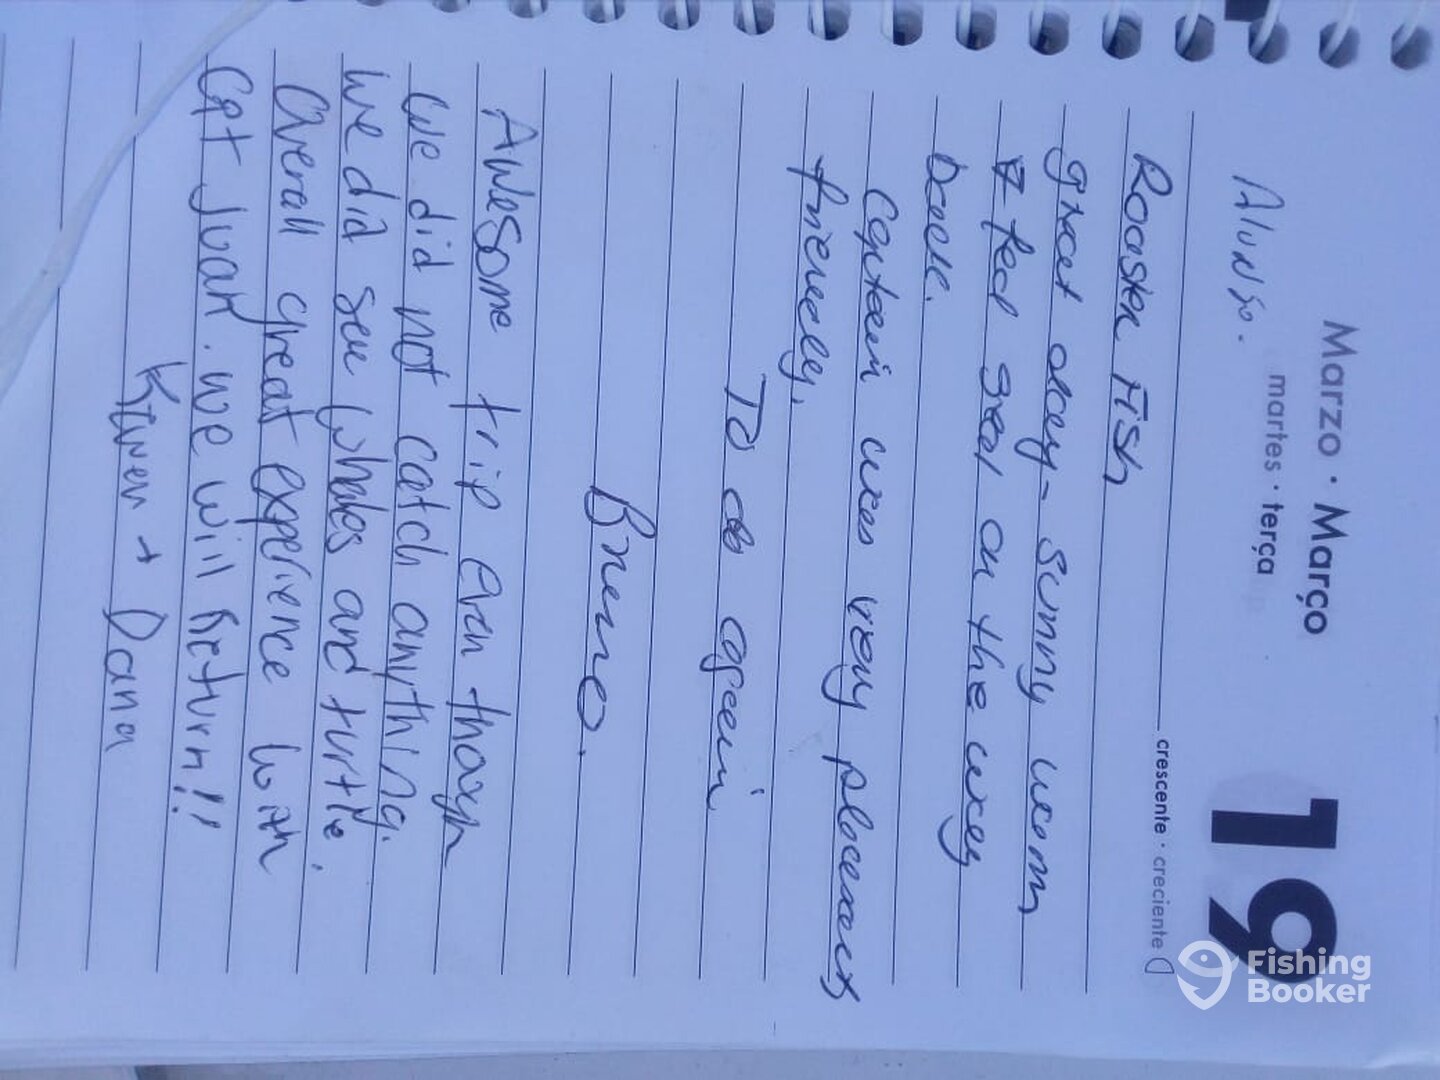 Marzo · Março
martes · terça
19
crescente · creciente
Rooster Fish
great day - sunny warm
7 feet seal on the way
back.
Captain was very pleasant
friendly.
To do again
Bruno.
Awesome trip even though
we did not catch anything.
we did see whales and turtle.
Overall great experience with
Cpt Juan. we will Return!!
+ Dana
Fishing
Booker